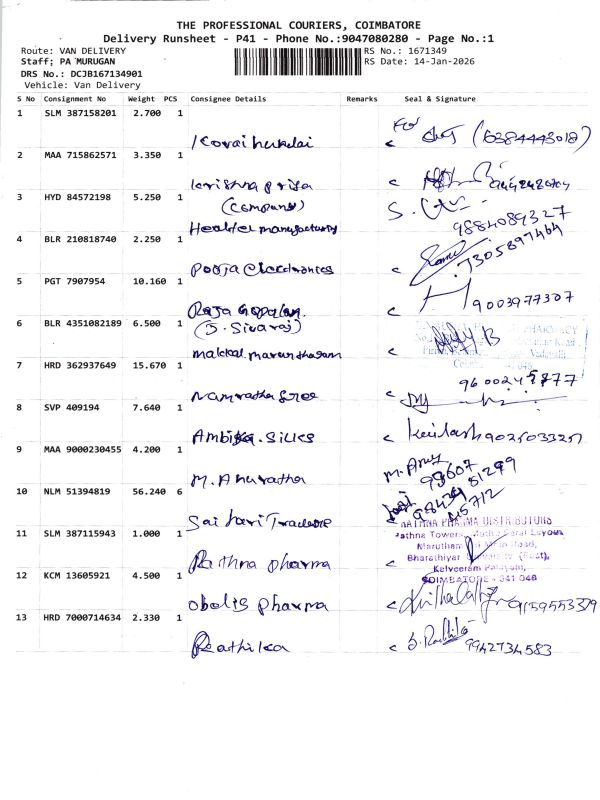 THE PROFESSIONAL COURIERS, COIMBATORE
Delivery Runsheet - P41 - Phone No.:9047080280 - Page No.:1
Route: VAN DELIVERY RS No.: 1671349
Staff; PA MURUGAN RS Date: 14-Jan-2026
DRS No.: DCJB167134901
Vehicle: Van Delivery
S No Consignment No Weight PCS Consignee Details Remarks Seal & Signature
1 SLM 387158201 2.700 1
(6384443018)
2 MAA 715862571 3.350 1
krishna priya
3 HYD 84572198 5.250 1
(company)
Healtel manufacturing
9884089327
4 BLR 210818740 2.250 1
7305897464
Pooja Electronics
5 PGT 7907954 10.160 1
Raja Gopalan 9003977307
6 BLR 4351082189 6.500 1
(J. Sivaraj)
PHARMACY
makkal marunthagam
7 HRD 362937649 15.670 1
Namratha Sree
8 SVP 409194 7.640 1
Ambika. Silks Kailash 9025033251
9 MAA 9000230455 4.200 1
M. Anuratha
10 NLM 51394819 56.240 6
Sai hari Traders
11 SLM 387115943 1.000 1
RATHNA PHARMA DISTRIBUTORS
Rathna Towers,
Rathna pharma
Bharathiyar University (East),
12 KCM 13605921 4.500 1
Kalveeram Palayam,
COIMBATORE - 641 046
obelis pharma 9159553379
13 HRD 7000714634 2.330 1
Rathika 9942734583